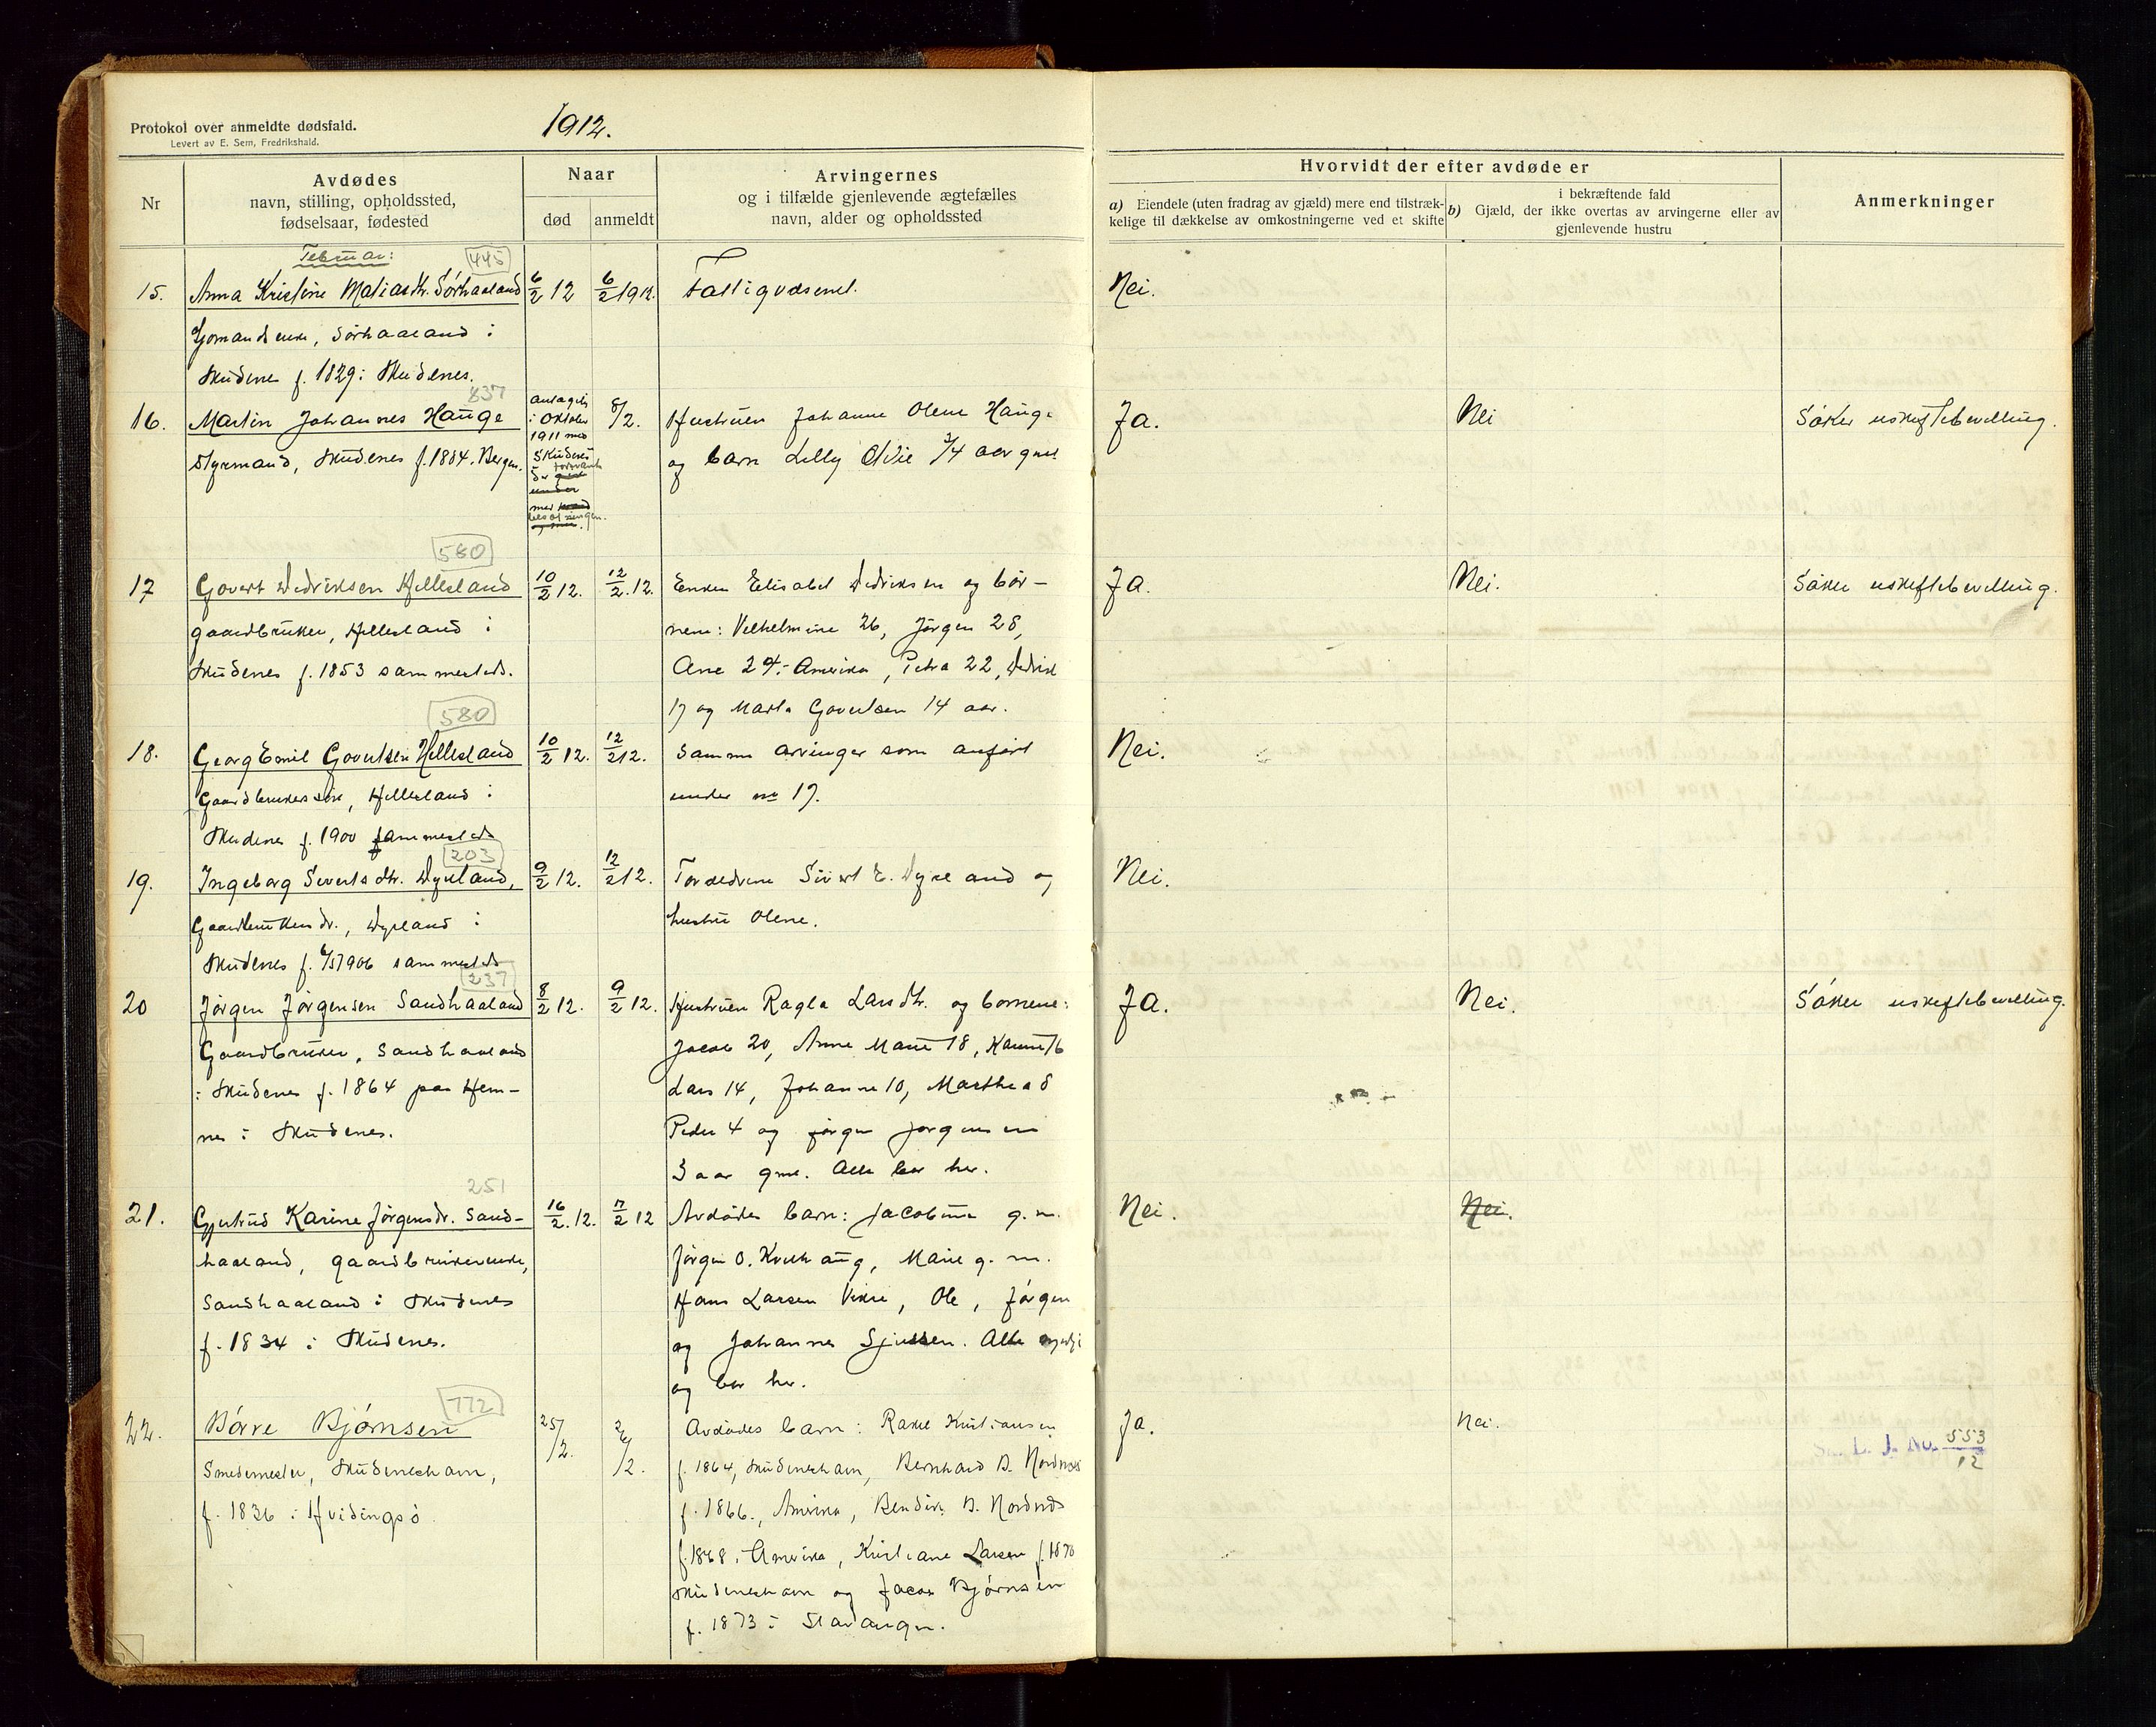 Protokol over anmeldte dødsfald.
Levert av E. Sem, Fredrikshald.
1912.
Nr
Avdødes
navn, stilling, opholdssted,
fødselsaar, fødested
Naar
død
anmeldt
Arvingernes
og i tilfælde gjenlevende ægtefælles
navn, alder og opholdssted
Hvorvidt der efter avdøde er
a) Eiendele (uten fradrag av gjæld) mere end tilstræk-
kelige til dækkelse av omkostningerne ved et skifte
b) i bekræftende fald
Gjæld, der ikke overtas av arvingerne eller av
gjenlevende hustru
Anmerkninger
Februar: 445
15. Anna Kristine Matiasdtr. Sørhaaland 6/2 12 6/2 1912. Fattigvæsenet. Nei.
Sørhaaland i
Skudenes f. 1829 i Skudenes.
837
16. Martin Johannes Hauge antagelig 8/2. Hustruen Johanne Olene Hauge Ja. Nei Søker uskiftebevilling.
i Oktober
1911 med
Styrmand, Skudenes f. 1884. Bergen. og barn Lilly 3/4 aar gml
580
17 Govert Dedriksen Hillesland 10/2 12. 12/2. 12. Enken Elisabet Dedriksen og bør- Ja. Nei. Søker uskiftebevilling.
gaardbruker, Hillesland i nene: Vilhelmine 26, Jørgen 28,
Skudenes f. 1853 sammesteds. Ane 24 i Amerika, Petra 22, Dedrik
17 og Marta Govertsen 14 aar.
580
18. Georg Emil Govertsen Hillesland 10/2 12. 12/2 12. Samme arvinger som anført Nei.
Gaardbrukersøn, Hillesland i under no 17.
Skudenes f. 1900 sammesteds
203
19. Ingeborg Sivertsdtr. Dyrland, 9/2 12. 12/2 12. Forældrene Sivert E. Dyrland og Nei.
Gaardbrukerdtr., Dyrland i hustru Olene.
Skudenes f. 6/5 1906 sammesteds
237
20 Jørgen Jørgensen Sandhaaland 8/2 12. 9/2 12. Hustruen Ragla Larsdtr. og børnene: Ja. Nei. Søker uskiftebevilling.
Gaardbruker, Sandhaaland Jacob 20, Anne Marie 18, 16
i Skudenes f. 1864 paa Hem- Lars 14, Johanne 10, Marthea 8
nes i Skudenes. Peder 4 og Jørgen Jørgensen
3 aar gml. Alle bor her.
251
21. Gjertrud Karine Jørgensdtr. Sand- 16/2. 12. 17/2 12 Avdødes barn: Jacobine g. m. Nei. Nei.
haaland, gaardbrukerenke, Jørgen O. Kvilhaug, Marie g. m.
Sandhaaland i Skudenes Hans Larsen Vikre, Ole, Jørgen
f. 1834 i Skudenes. og Johannes Sjursen. Alle myndige
og bor her.
772
22. Børre Bjørnsen 25/2. 26/2. Avdødes barn: Rakel Kristiansen Ja. Nei.
Smedemester, Skudeneshavn, f. 1864, Skudeneshavn, Bernhard B. Nordnes
f. 1836 i Hvidingsø f. 1866., Amerika, B. Nordnes
f. 1868. Amerika, Kristiane Larsen f. 1870
Skudeneshavn og Jacob Bjørnsen
f. 1873 i Stavanger.
L. J. No. 553/12